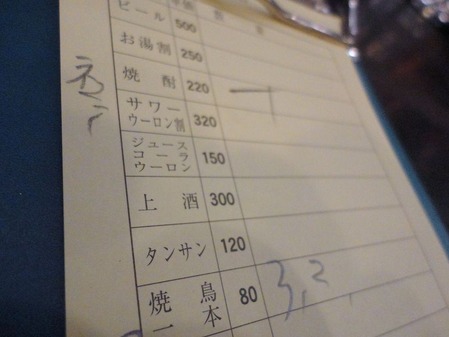 ビール 500
お湯割 250
焼酎 220 一
サワー
ウーロン割 320
ジュース
コーラ
ウーロン 150
上酒 300
タンサン 120
焼鳥
一本 80